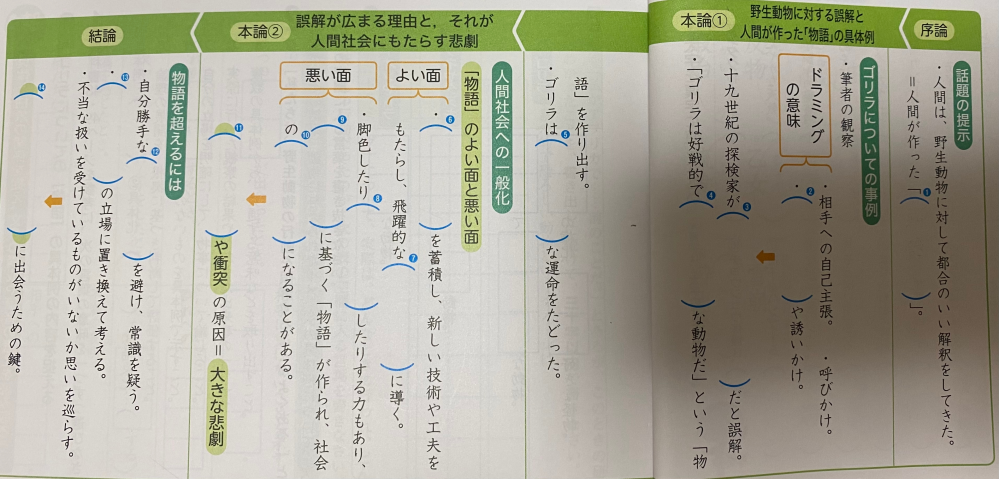 序論
話題の提示
・人間は、野生動物に対して都合のいい解釈をしてきた。
＝人間が作った「❶（　　）」。
本論①
野生動物に対する誤解と
人間が作った「物語」の具体例
ゴリラについての事例
・筆者の観察
ドラミング
の意味
・相手への自己主張。　・呼びかけ。
・❷（　　）や誘いかけ。
・十九世紀の探検家が❸（　　）だと誤解。
・「ゴリラは好戦的で❹（　　）な動物だ」という「物
語」を作り出す。
・ゴリラは❺（　　）な運命をたどった。
本論②
誤解が広まる理由と，それが
人間社会にもたらす悲劇
人間社会への一般化
「物語」のよい面と悪い面
よい面
・❻（　　）を蓄積し、新しい技術や工夫を
もたらし、飛躍的な❼（　　）に導く。
悪い面
・脚色したり❽（　　）したりする力もあり、
❾（　　）に基づく「物語」が作られ、社会
の❿（　　）になることがある。
⓫（　　）や衝突の原因＝大きな悲劇
結論
物語を超えるには
・自分勝手な⓬（　　）を避け、常識を疑う。
・⓭（　　）の立場に置き換えて考える。
・不当な扱いを受けているものがいないか思いを巡らす。
⓮（　　）に出会うための鍵。